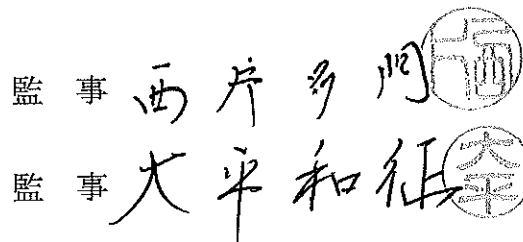 監事 西片多門
監事 大平和征
大平